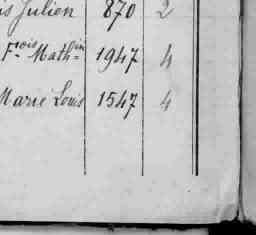 is Julien 870 2
Fcois Mathin 1947 4
Marie Louis 1547 4